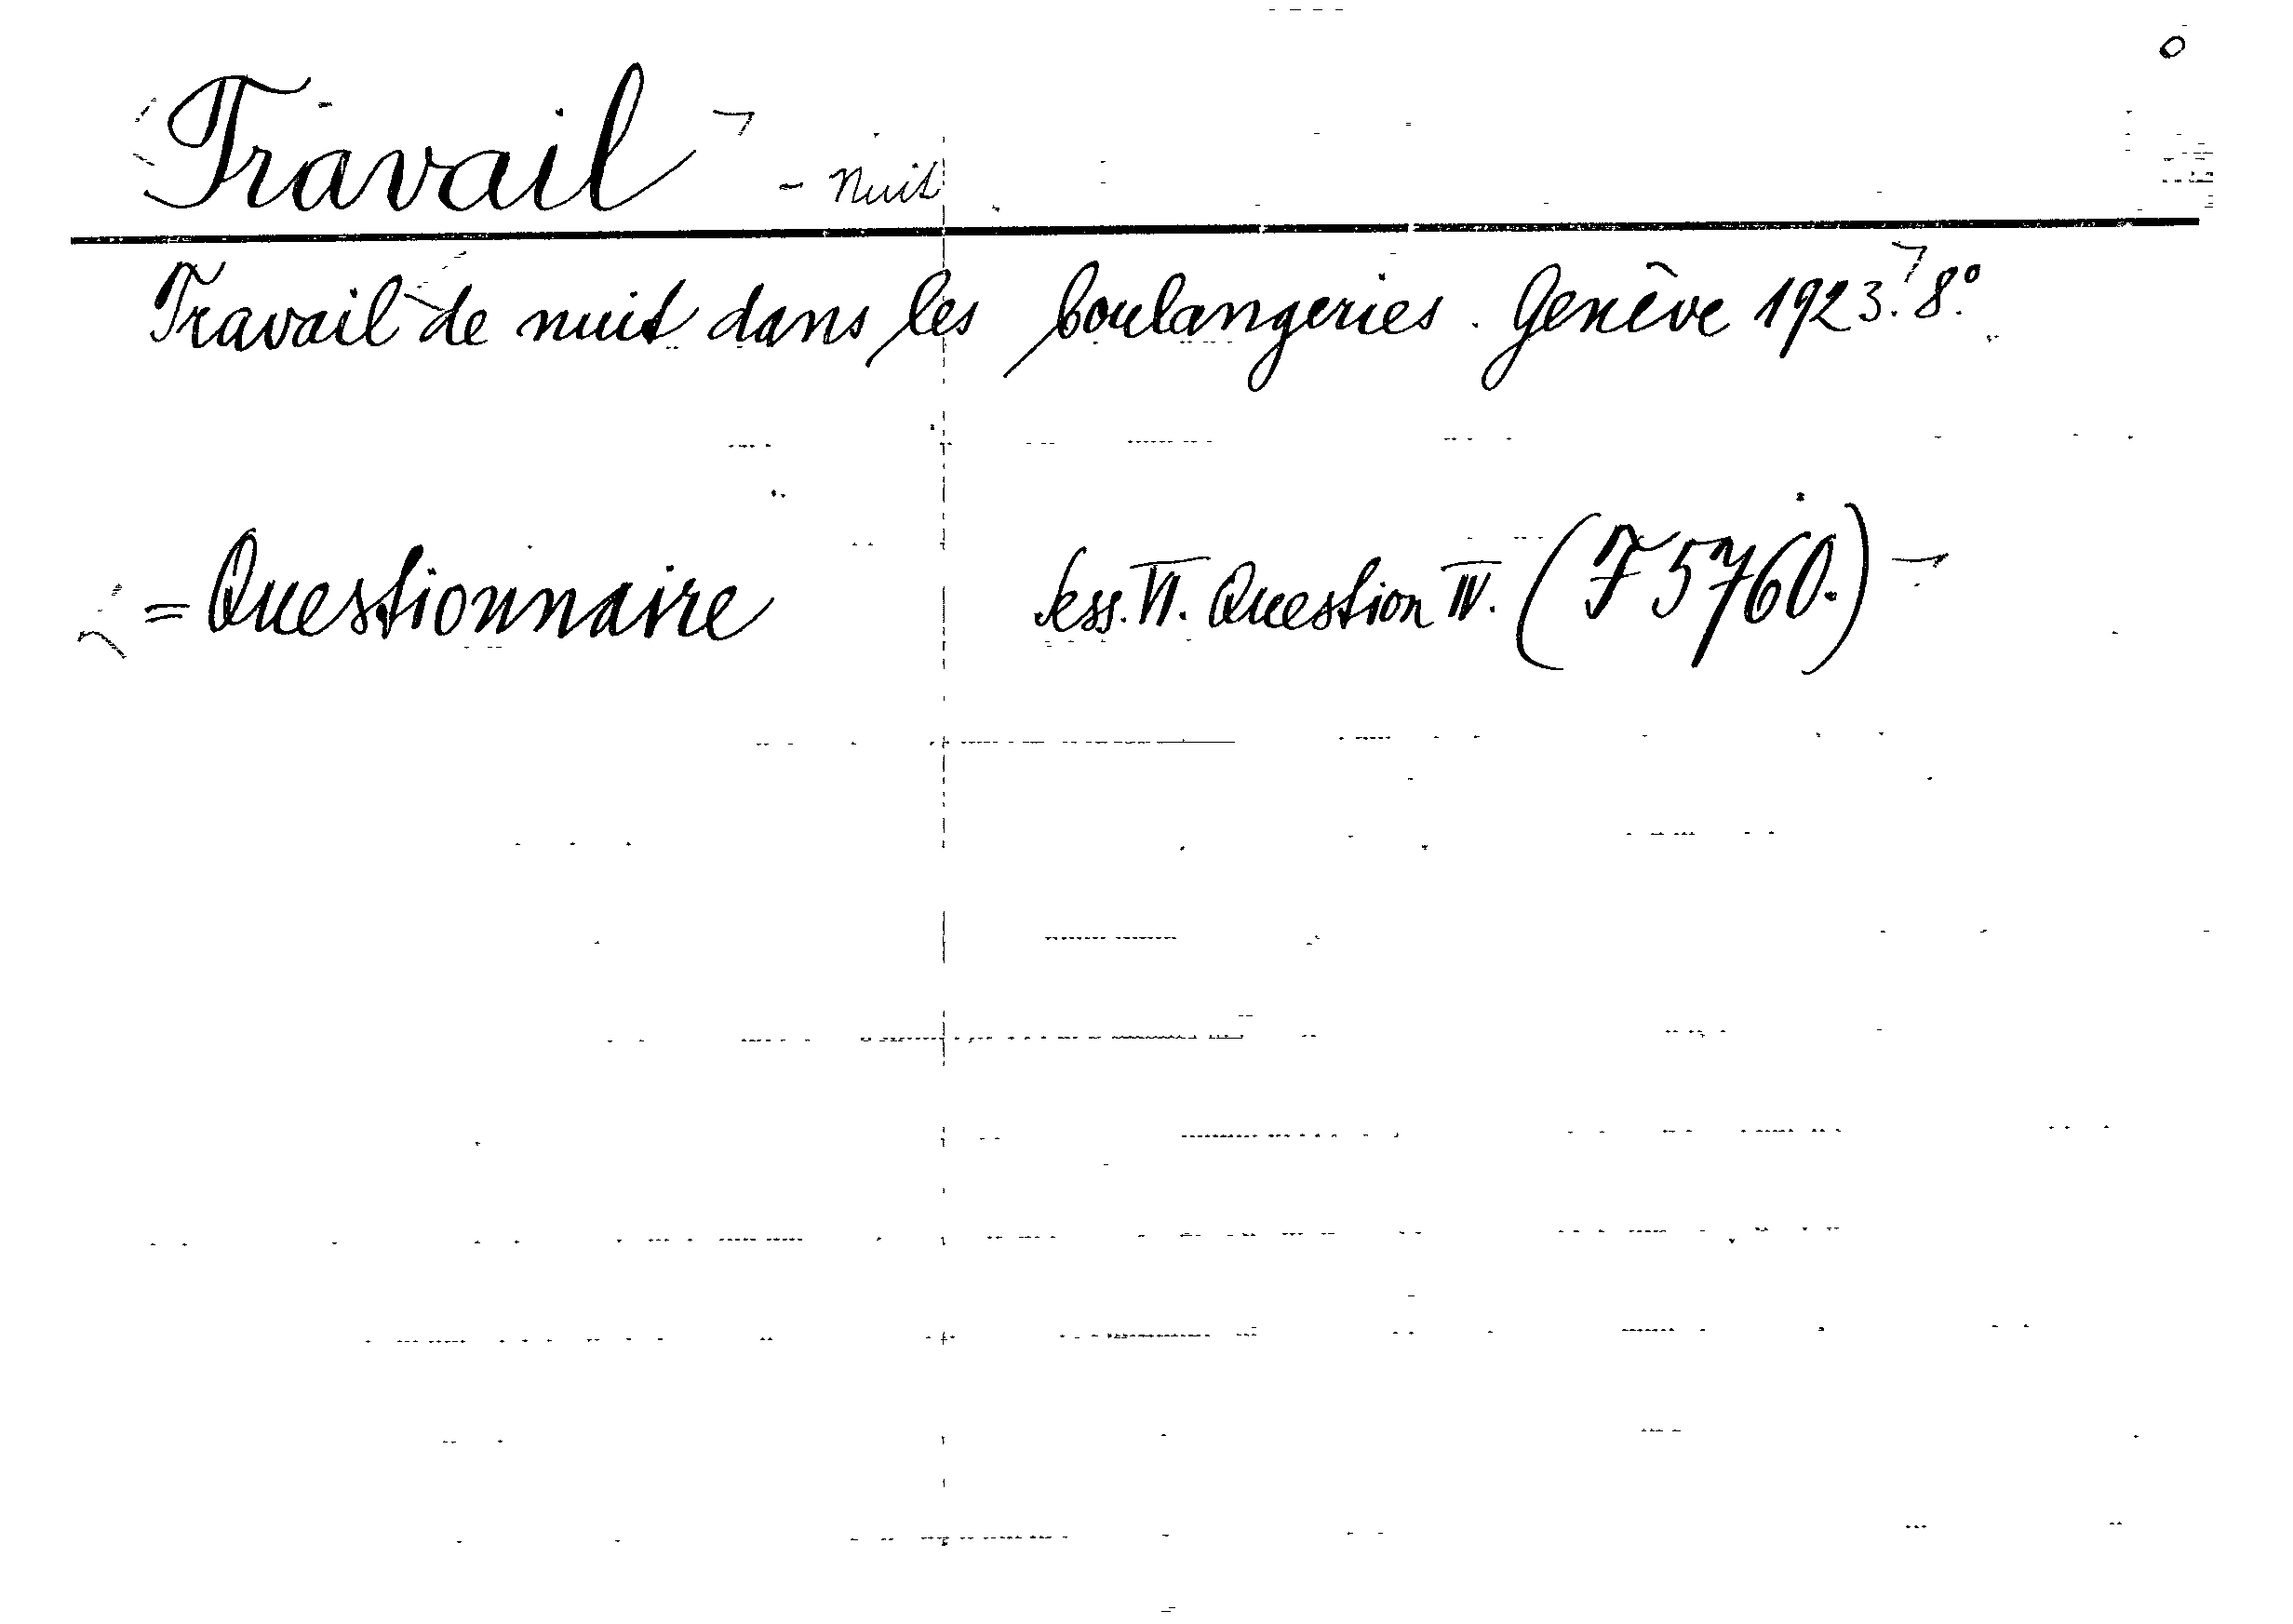 Travail - Nuit
Travail de nuit dans les boulangeries. Genêve 1923. 8º.
= Questionnaire Sess. VI. Question IV. (F 5760.)